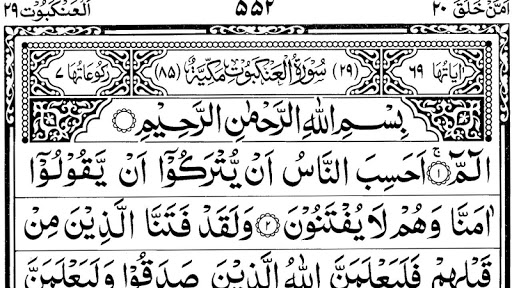 اَمَّنْ خَلَقَ ٢٠ ٥٥٢ اَلْعَنْكَبُوْت ٢٩
اٰيَاتُهَا ٦٩ (٢٩) سُوْرَةُ الْعَنْكَبُوْتِ مَكِّيَّةٌ (٨٥) رُكُوْعَاتُهَا ٧
بِسْمِ اللّٰهِ الرَّحْمٰنِ الرَّحِيْمِ
الٓمّٓ ۚ﴿١﴾ اَحَسِبَ النَّاسُ اَنْ يُّتْرَكُوْٓا اَنْ يَّقُوْلُوْٓا
اٰمَنَّا وَهُمْ لَا يُفْتَنُوْنَ ﴿٢﴾ وَلَقَدْ فَتَنَّا الَّذِيْنَ مِنْ
قَبْلِهِمْ فَلَيَعْلَمَنَّ اللّٰهُ الَّذِيْنَ صَدَقُوْا وَلَيَعْلَمَنَّ